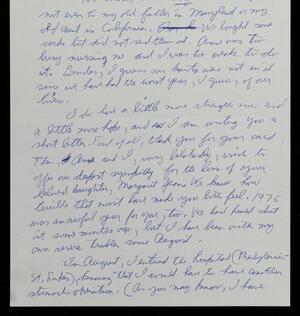 not even to my old father in Maryland or my
in California. We bought some
cards but did not send them out. Anne was too
busy nursing me and I was too weak to do
it. Besides, I guess our hearts were not in it
since we have had the worst year, I guess, of our
lives.
I do have a little more strength now and
a little more hope, and so I am writing you a
short letter. First of all, thank you for your card
Then, Anne and I, very belatedly, wish to
offer our deepest sympathy for the loss of your
beloved daughter, Margaret Jean. We know how
terrible that must have made you both feel. 1976
was an awful year for you, too. We had heard about
it some months ago, but I have been with my
own serve troubles since August.
In August, I entered the hospital (Presbyterian-
St. Luke's), knowing that I would have to have another
stomach operation. (As you may know, I have